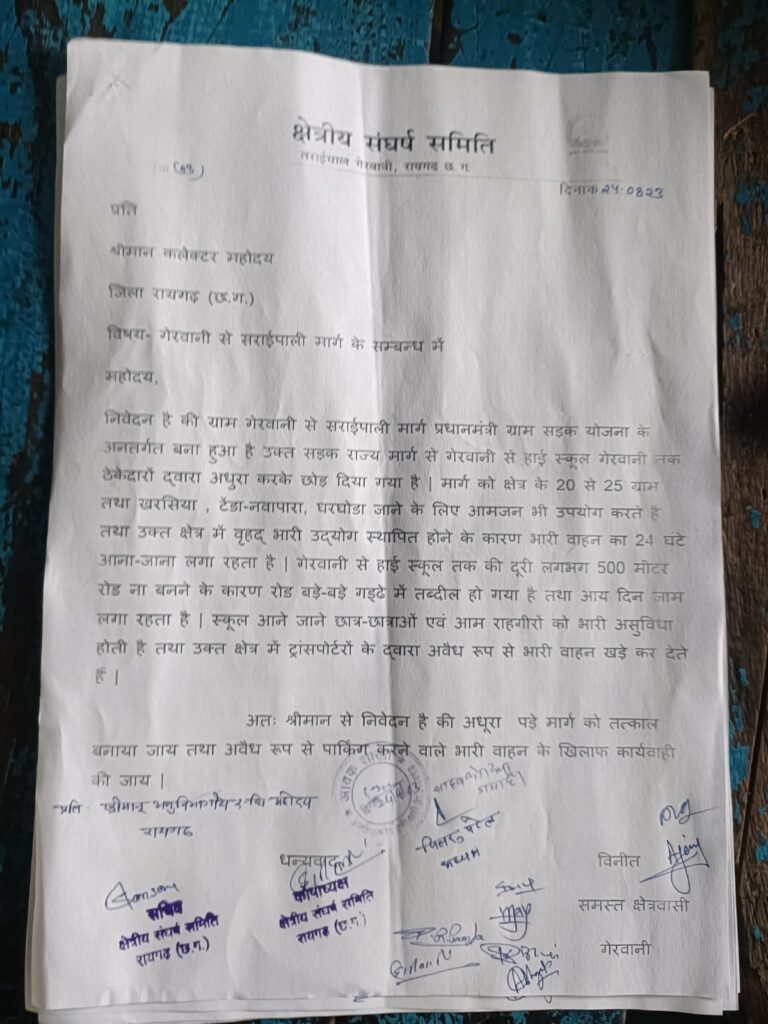 क्षेत्रीय संघर्ष समिति
तराईमाल गेरवानी, रायगढ छ.ग.
दिनांक 24.0823
प्रति
श्रीमान कलेक्टर महोदय
जिला रायगढ़ (छ.ग.)
विषय- गेरवानी से सराईपाली मार्ग के सम्बन्ध में
महोदय,
निवेदन है की ग्राम गेरवानी से सराईपाली मार्ग प्रधानमंत्री ग्राम सड़क योजना के
अनतर्गत बना हुआ है उक्त सड़क राज्य मार्ग से गेरवानी से हाई स्कूल गेरवानी तक
ठेकेदारों द्वारा अधुरा करके छोड़ दिया गया है | मार्ग को क्षेत्र के 20 से 25 ग्राम
तथा खरसिया , टेंडा-नवापारा, घरघोडा जाने के लिए आमजन भी उपयोग करते है
तथा उक्त क्षेत्र में वृहद् भारी उद्योग स्थापित होने के कारण भारी वाहन का 24 घंटे
आना-जाना लगा रहता है | गेरवानी से हाई स्कूल तक की दूरी लगभग 500 मीटर
रोड ना बनने के कारण रोड बड़े-बड़े गड्ढे में तब्दील हो गया है तथा आय दिन जाम
लगा रहता है | स्कूल आने जाने छात्र-छात्राओं एवं आम राहगीरों को भारी असुविधा
होती है तथा उक्त क्षेत्र में ट्रांसपोर्टरों के द्वारा अवैध रूप से भारी वाहन खड़े कर देते
हैं |
अतः श्रीमान से निवेदन है की अधूरा पड़े मार्ग को तत्काल
बनाया जाय तथा अवैध रूप से पार्किंग करने वाले भारी वाहन के खिलाफ कार्यवाही
की जाय |
आवक शाखा
प्रति- श्रीमान् अनुविभागीय महोदय
रायगढ
पटेल
अध्यक्ष
धन्यवाद
विनीत
Ajay
सचिव
क्षेत्रीय संघर्ष समिति
रायगढ़ (छ.ग.)
कोषाध्यक्ष
क्षेत्रीय संघर्ष समिति
रायगढ़ (छ.ग.)
समस्त क्षेत्रवासी
गेरवानी